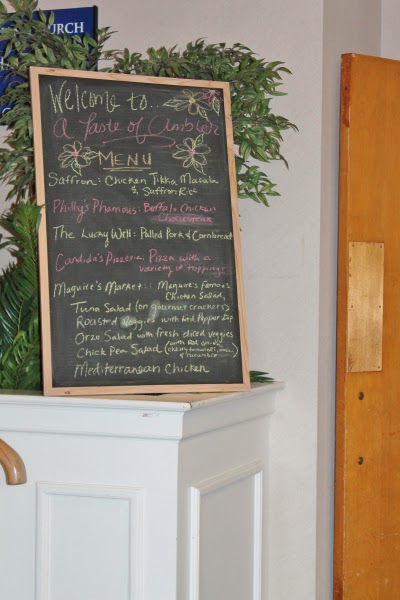 CHURCH
Welcome to...
A Taste of Ambler
MENU
Saffron: Chicken Tikka Masala
& Saffron Rice
Philly's Phamous: Buffalo Chicken
Cheesesteak
The Lucky Well: Pulled Pork & Cornbread
Candida's Pizzeria: Pizza with a
variety of toppings
Maguire's Market:: Maguire's Famous
Chicken Salad,
Tuna Salad (on gourmet crackers)
Roasted Veggies with Red Pepper Dip
Orzo Salad with fresh diced veggies
Chick Pea Salad (with red onion,
cherry tomatoes,
& cucumber)
Mediterranean Chicken